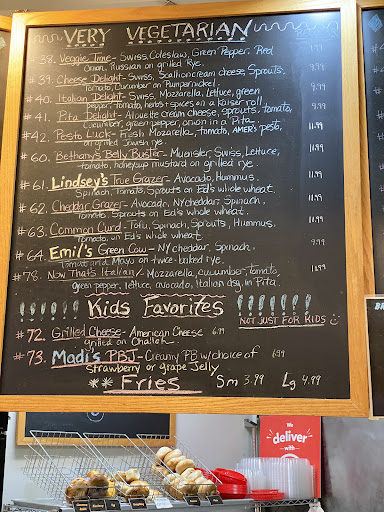 VERY VEGETARIAN
#38. Veggie Time - Swiss, Coleslaw, Green Pepper, Red
Onion, Russian on grilled Rye.
#39. Cheese Delight - Swiss, Scallion cream cheese, Sprouts,
Tomato, Cucumber on Pumpernickel.
#40. Italian Delight - Swiss, Mozzarella, lettuce, green
pepper, tomato, herbs + spices on a Kaiser roll
#41. Pita Delight - Alouette cream cheese, Sprouts, Tomato,
Cucumber, green pepper, onion in a Pita. 11.99
#42. Pesto Luck - Fresh Mozzarella, tomato, AMER's pesto,
on grilled Jewish rye. 11.99
#60. Bethany's Belly Buster - Muenster, Swiss, Lettuce, 11.99
tomato, honeymustard on grilled rye.
#61. Lindsey's True Grazer - Avocado, Hummus, 11.99
Spinach, Tomato, Sprouts on Ed's whole wheat.
#62. Cheddar Grazer - Avocado, NY cheddar, Spinach, 11.99
Tomato, Sprouts on Ed's whole wheat.
#63. Common Curd - Tofu, Spinach, Sprouts, Hummus, 11.99
Tomato, on Ed's whole wheat.
#64. Emil's Green Cow - NY cheddar, Spinach, 9.99
Tomato and Mayo on twice-baked rye.
#78. Now That's Italian! - Mozzarella, cucumber, tomato,
green pepper, lettuce, avocado, Italian dsg, in Pita.
Kids Favorites
NOT JUST FOR KIDS
#72. Grilled Cheese - American Cheese 6.99
grilled on Challah.
#73. Madi's PBJ - Creamy PB w/choice of 6.99
Strawberry or grape Jelly
** Fries Sm 3.99 Lg 4.99
We
deliver
with